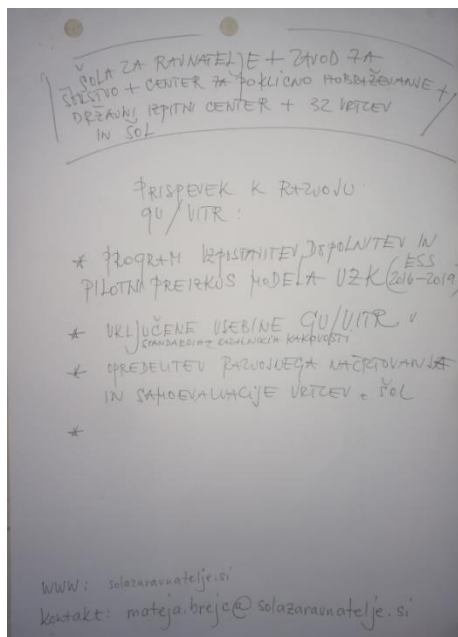 ŠOLA ZA RAVNATELJE + ZAVOD ZA
ŠOLSTVO + CENTER ZA POKLICNO IZOBRAŽEVANJE +
DRŽAVNI IZPITNI CENTER + 32 VRTCEV
IN ŠOL
PRISPEVEK K RAZVOJU
GU/VITR:
* PROGRAM IZPOSTAVITEV, DOPOLNITEV IN
PILOTNI PREIZKUS MODELA UZK (ESS 2016-2019)
* VKLJUČENE VSEBINE GU/VITR V
STANDARDIH KAZALNIKIH KAKOVOSTI
* OPREDELITEV RAZVOJNEGA NAČRTOVANJA
IN SAMOEVALVACIJE VRTCEV, ŠOL
*
WWW: solazaravnatelje.si
kontakt: mateja.brejc@solazaravnatelje.si